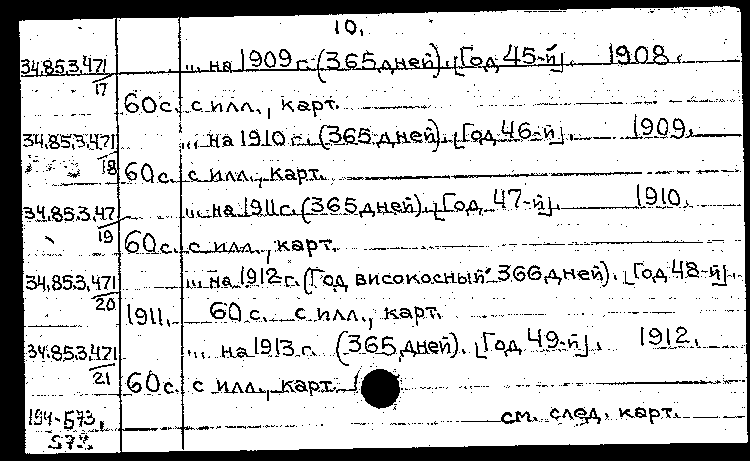 10.
34.85.3.471/17 „. на 1909 г. (365 дней). [Год 45-й]. 1908.
60 с. с илл., карт.
34.85.3.471/18 „. на 1910 г. (365 дней). [Год 46-й]. 1909.
60 с. с илл., карт.
34.85.3.47/19 „. на 1911 г. (365 дней). [Год 47-й]. 1910.
60 с. с илл., карт.
34.85.3.471/20 „. на 1912 г. (Год високосный 366 дней). [Год 48-й].
1911. 60 с. с илл., карт.
34.85.3.471/21 „. на 1913 г. (365 дней). [Год 49-й]. 1912.
60 с. с илл., карт.
194-573, см. след. карт.